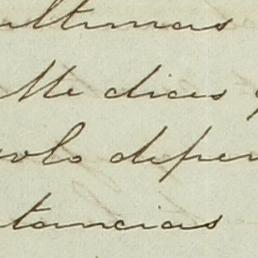 ultimas
Me dices q
solo depen
tancias